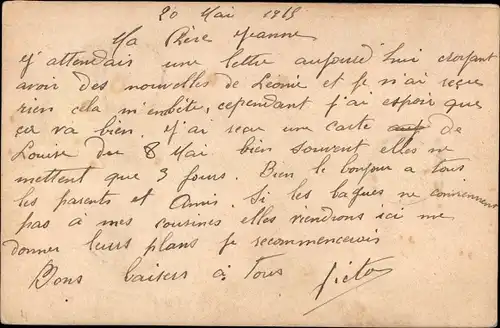 20 Mai 1915
Ma Chère Jeanne
j'attendais une lettre aujourd'hui croyant
avoir des nouvelles de Leonie et je n'ai reçu
rien cela m'embête, cependant j'ai espoir que
ça va bien. J'ai reçu une carte de
Louise du 8 Mai bien souvent elles ne
mettent que 3 jours. Bien le bonjour a tous
les parents et Amis. Si les bagues ne conviennent
pas à mes cousines elles viendrons ici me
donner leurs plans je recommencerois
Bons baisers a Tous Victor